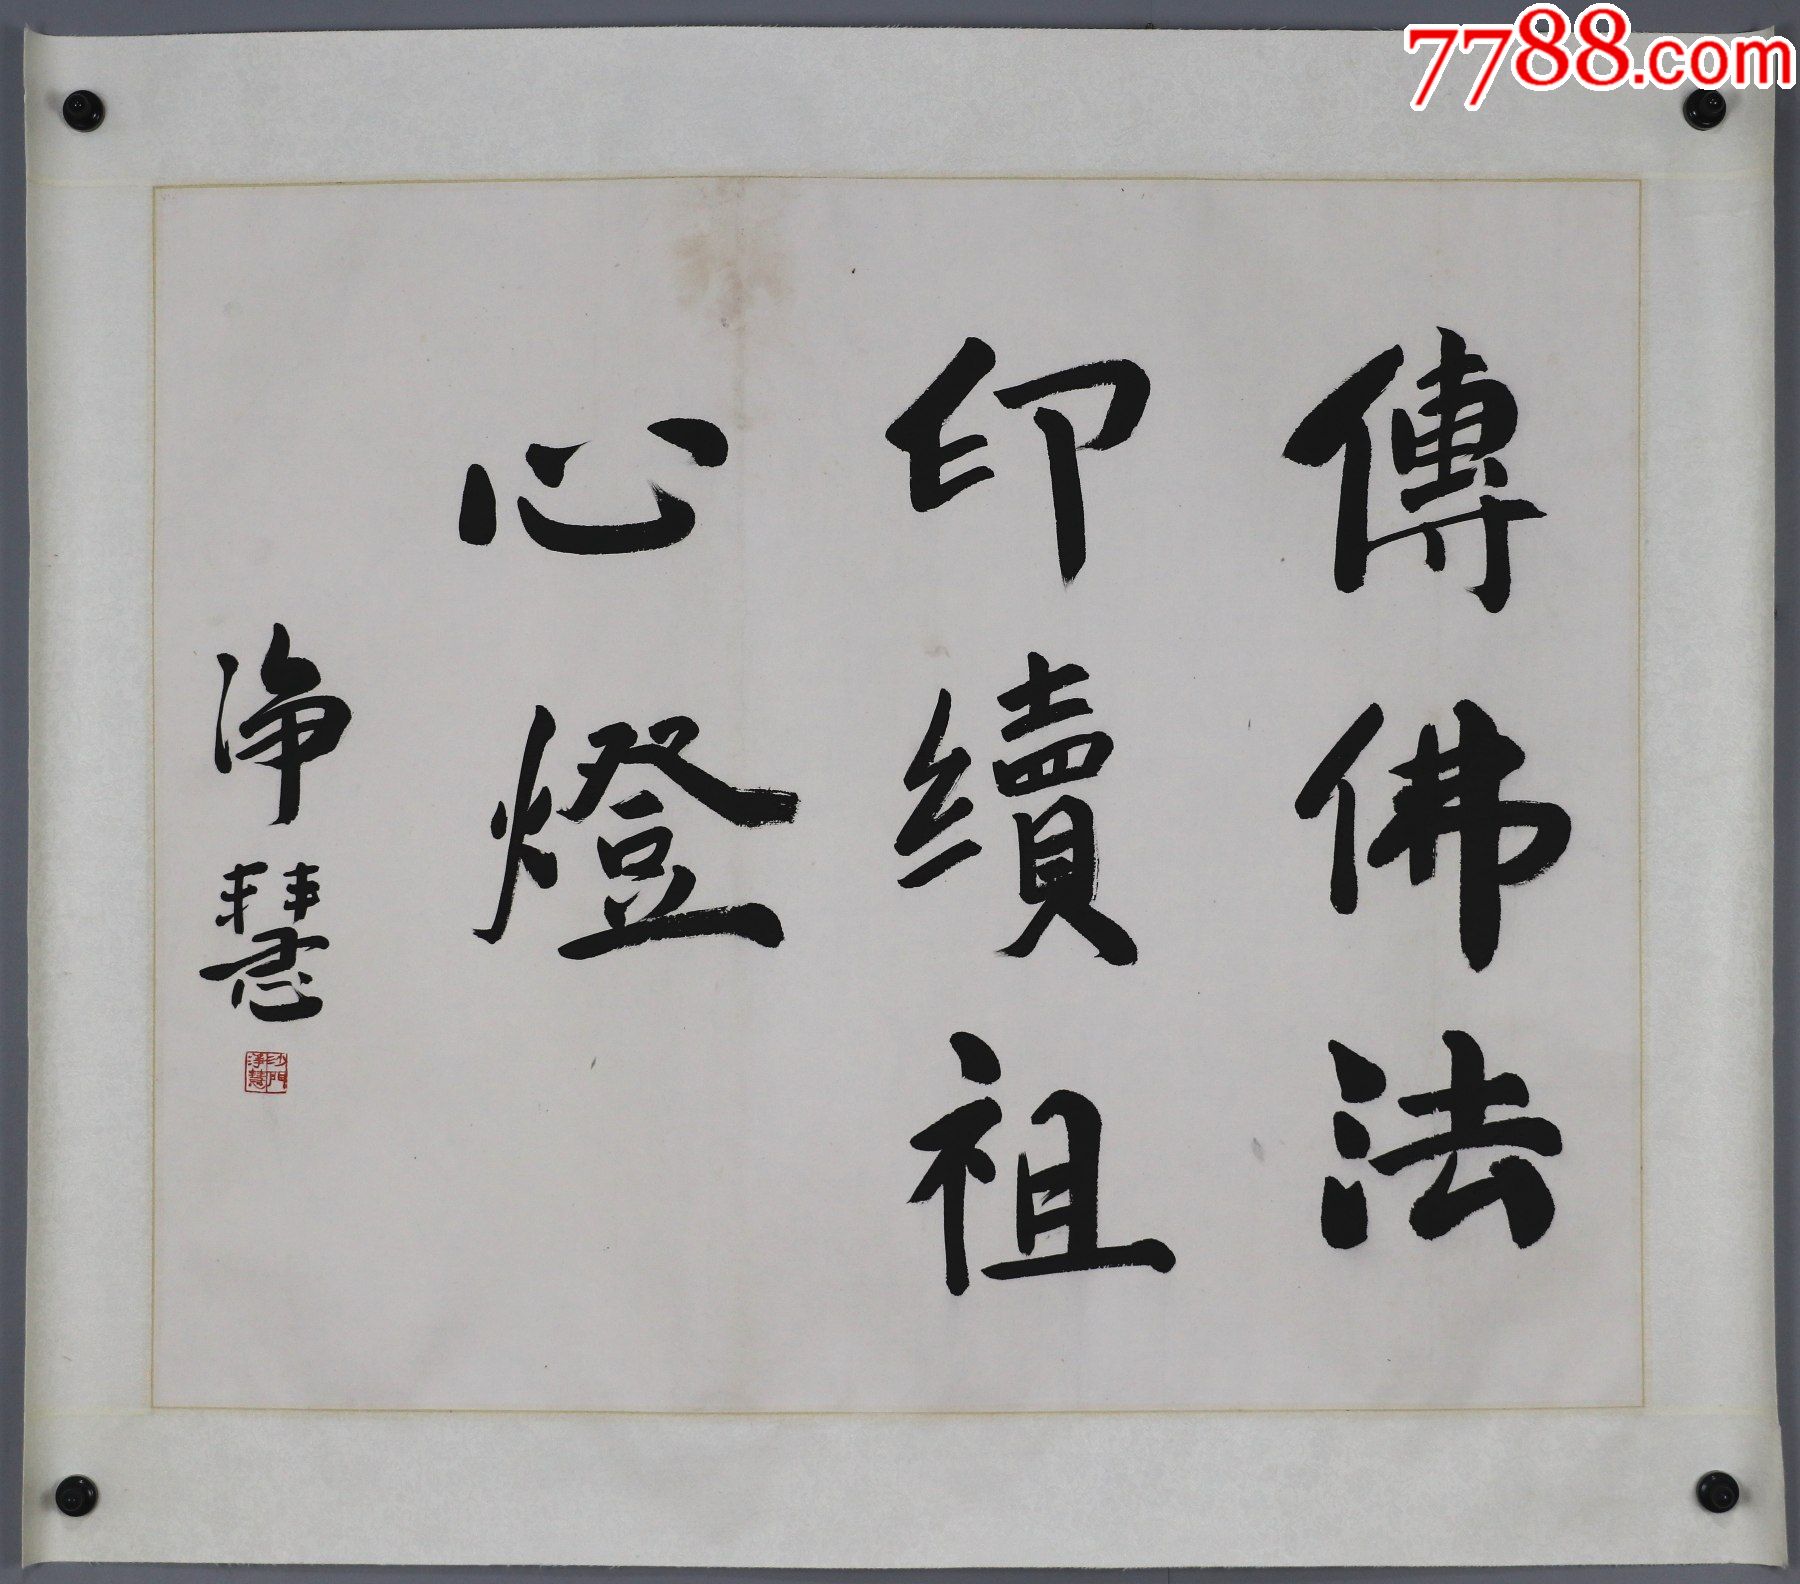 傳佛法
印續祖
心燈
淨慧
沙門
淨慧
7788.com